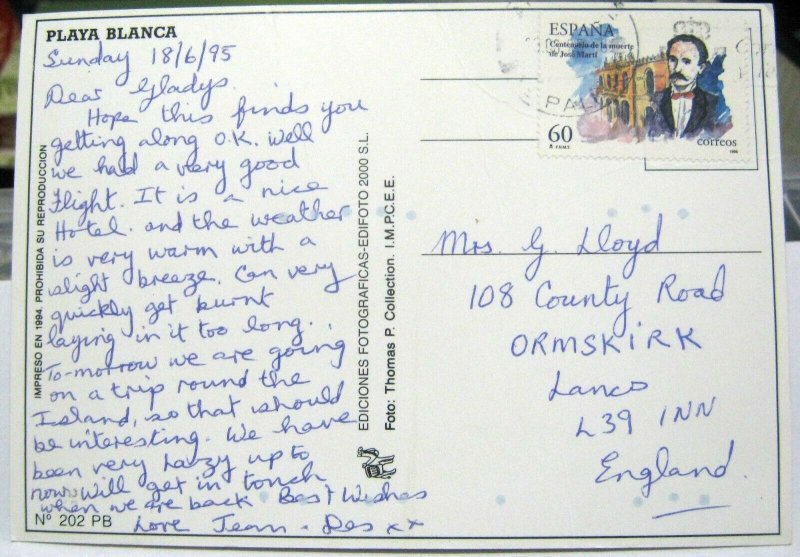 PLAYA BLANCA
Sunday 18/6/95
Dear Gladys
Hope this finds you
getting along O.K. Well
we had a very good
Flight. It is a nice
Hotel. and the weather
is very warm with a
slight breeze. Can very
quickly get burnt
laying in it too long.
To-morrow we are going
on a trip round the
Island, so that should
be interesting. We have
been very Lazy up to
now will get in touch
when we are back Best Wishes
Love Jean - Des xx
Nº 202 PB
IMPRESO EN 1994. PROHIBIDA SU REPRODUCCION
EDICIONES FOTOGRAFICAS-EDIFOTO 2000 S.L.
Foto: Thomas P. Collection. I.M.P.C.E.E.
ESPAÑA
Centenario de la muerte
de José Martí
60
F.N.M.T.
correos
Mrs. G. Lloyd
108 County Road
ORMSKIRK
Lancs
L39 1NN
England.